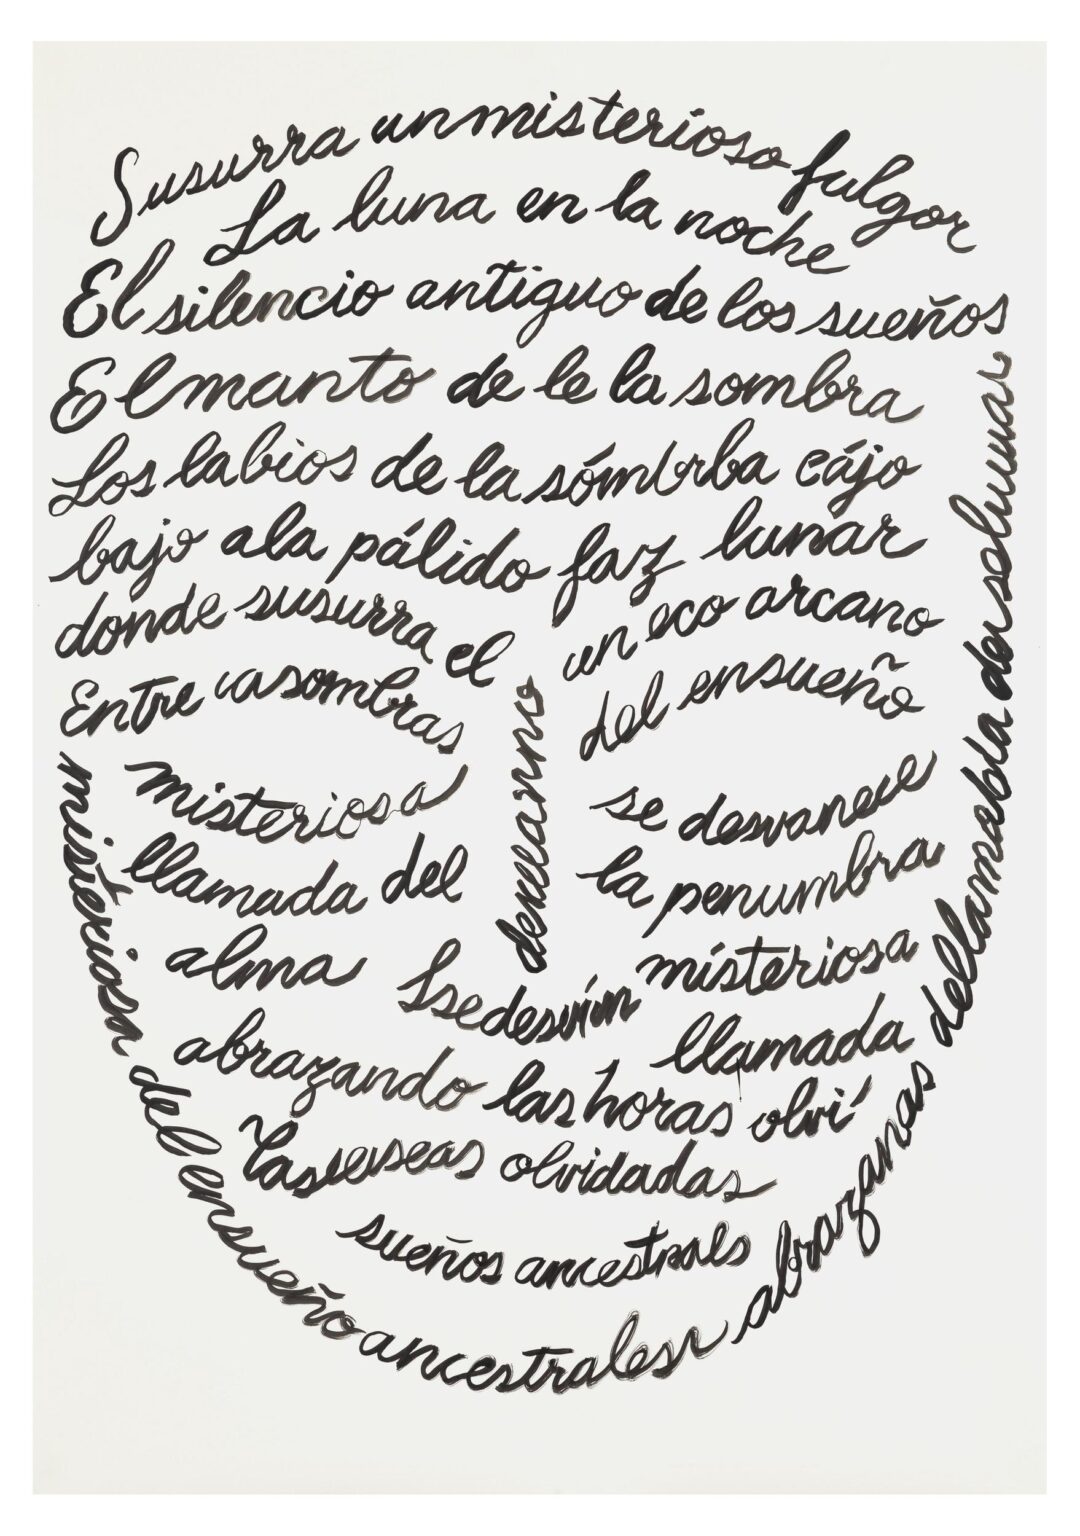 Susurra un misterioso fulgor
La luna en la noche
El silencio antiguo de los sueños
El manto de le la sombra
Los labios de la
bajo ala pálido faz lunar
donde susurra el
un eco arcano
Entre sombras
del ensueño
misteriosa
se desvanece
llamada del
la penumbra
alma
misteriosa
llamada
abrazando las horas olvi
olvidadas
sueños ancestrals
misteriosa del ensueño